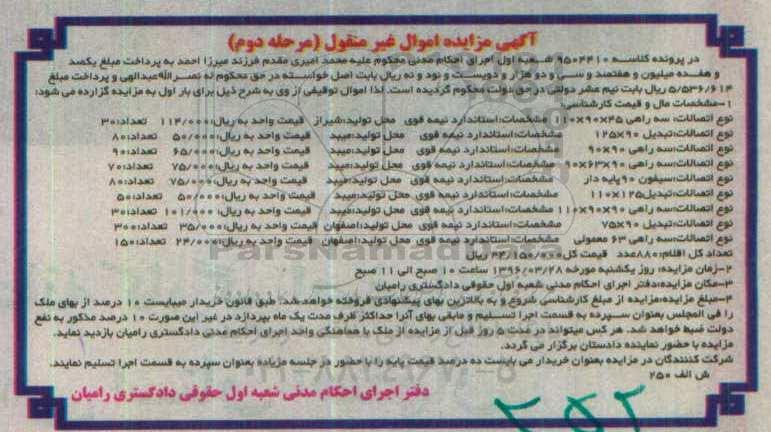 آگهی مزایده اموال غیر منقول (مرحله دوم)
در پرونده کلاسه ۹۵۰۴۴۱۰ شعبه اول اجرای احکام مدنی محکوم علیه محمد امیری مقدم فرزند میرزا احمد به پرداخت مبلغ یکصد
و هفده میلیون و هفتصد و سی و دو هزار و دویست و نود و نه ریال بابت اصل خواسته در حق محکوم له نصرالله عبدالهی و پرداخت مبلغ
۵/۵۳۶/۶۱۴ ریال بابت نیم عشر دولتی در حق دولت محکوم گردیده است. لذا اموال توقیفی از وی به شرح ذیل برای بار اول به مزایده گزارده می شود:
۱-مشخصات مال و قیمت کارشناسی:
نوع اتصالات: سه راهی ۴۵×۹۰×۱۱۰ مشخصات: استاندارد نیمه قوی محل تولید: شیراز قیمت واحد به ریال: ۱۱۴/۰۰۰ تعداد: ۳۰
نوع اتصالات: تبدیل ۹۰×۱۲۵ مشخصات: استاندارد نیمه قوی محل تولید: میبد قیمت واحد به ریال: ۵۰/۰۰۰ تعداد: ۸۰
نوع اتصالات: سه راهی ۹۰×۹۰ مشخصات: استاندارد نیمه قوی محل تولید: میبد قیمت واحد به ریال: ۶۵/۰۰۰ تعداد: ۹۰
نوع اتصالات: سه راهی ۹۰×۶۳×۹۰ مشخصات: استاندارد نیمه قوی محل تولید: میبد قیمت واحد به ریال: ۷۵/۰۰۰ تعداد: ۷۰
نوع اتصالات: سیفون ۹۰ پایه دار مشخصات: استاندارد نیمه قوی محل تولید: میبد قیمت واحد به ریال: ۷۵/۰۰۰ تعداد: ۸۰
نوع اتصالات: تبدیل ۱۲۵×۱۱۰ مشخصات: استاندارد نیمه قوی محل تولید: میبد قیمت واحد به ریال: ۵۰/۰۰۰ تعداد: ۵۰
نوع اتصالات: سه راهی ۹۰×۹۰×۱۱۰ مشخصات: استاندارد نیمه قوی محل تولید: میبد قیمت واحد به ریال: ۱۰۱/۰۰۰ تعداد: ۳۰
نوع اتصالات: تبدیل ۹۰×۷۵ مشخصات: استاندارد نیمه قوی محل تولید: اصفهان قیمت واحد به ریال: ۳۵/۰۰۰ تعداد: ۳۰۰
نوع اتصالات: سه راهی ۶۳ معمولی مشخصات: استاندارد نیمه قوی محل تولید: اصفهان قیمت واحد به ریال: ۲۴/۰۰۰ تعداد: ۱۵۰
تعداد کل اقلام: ۸۸۰ عدد قیمت کل ۴۴/۱۵۰/۰۰۰ ریال
۲-زمان مزایده: روز یکشنبه مورخه ۱۳۹۶/۰۳/۲۸ ساعت ۱۰ صبح الی ۱۱ صبح
۳-مکان مزایده: دفتر اجرای احکام مدنی شعبه اول حقوقی دادگستری رامیان
۴-مبلغ مزایده: مزایده از مبلغ کارشناسی شروع و به بالاترین بهای پیشنهادی فروخته خواهد شد. طبق قانون خریدار میبایست ۱۰ درصد از بهای ملک
را فی المجلس بعنوان سپرده به قسمت اجرا تسلیم و مابقی بهای آنرا حداکثر ظرف مدت یک ماه بپردازد در غیر این صورت ۱۰ درصد مذکور به نفع
دولت ضبط خواهد شد. هر کس میتواند در مدت ۵ روز قبل از مزایده از ملک با هماهنگی واحد اجرای احکام مدنی دادگستری رامیان بازدید نماید.
مزایده با حضور نماینده دادستان برگزار می گردد.
شرکت کنندگان در مزایده بعنوان خریدار می بایست ده درصد قیمت پایه را با حضور در جلسه مزیاده بعنوان سپرده به قسمت اجرا تسلیم نمایند.
ش الف ۲۵۰
دفتر اجرای احکام مدنی شعبه اول حقوقی دادگستری رامیان
ParsNamadData